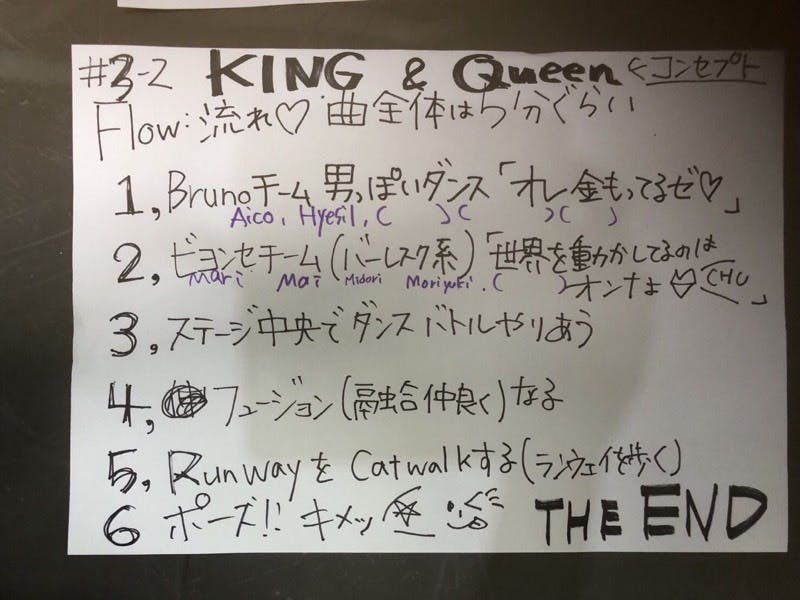 #3-2 KING & Queen ←コンセプト
Flow:流れ♡ 曲全体は5分ぐらい
1, Brunoチーム 男っぽいダンス「オレ金もってるゼ♡」
Aico, Hyesil, ( )( )( )
2, ビヨンセチーム(バーレスク系)「世界を動かしてるのは
Mari Mai Midori Moriyuki, ( ) オンナよ♡CHU」
3, ステージ中央でダンスバトルやりあう
4, フュージョン(融合仲良く)なる
5, RunwayをCatwalkする(ランウェイを歩く)
6 ポーズ!! キメッ☆ THE END